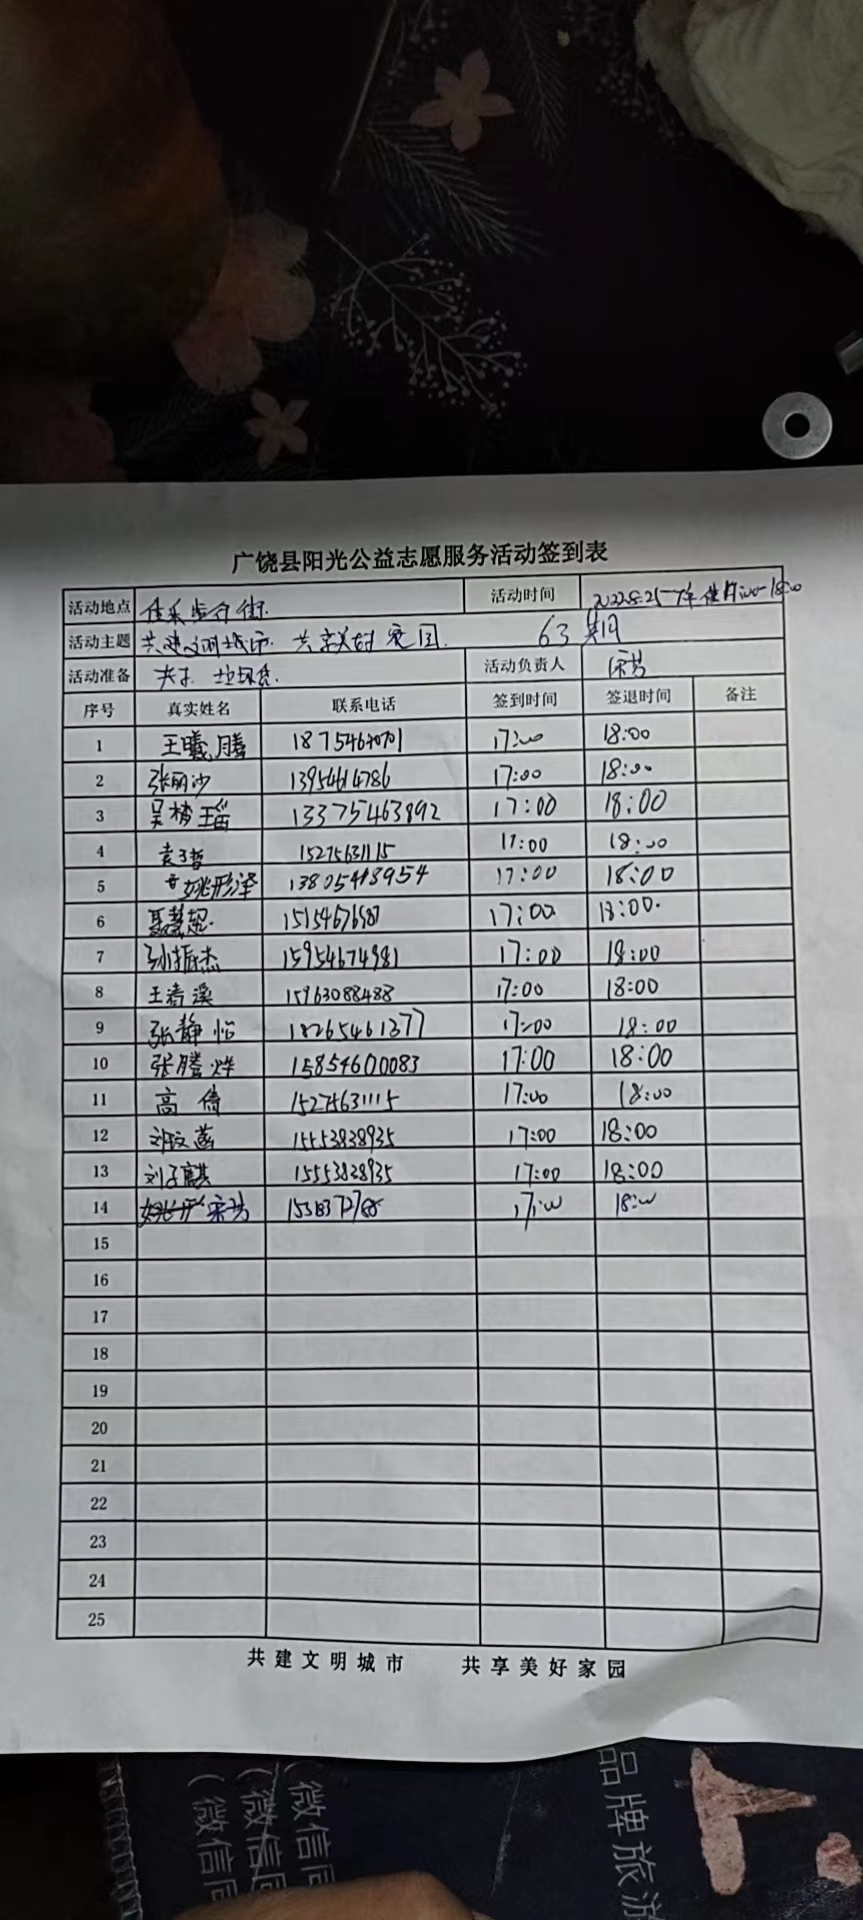 广饶县阳光公益志愿服务活动签到表
活动地点 佳乐步行街 活动时间 2022.8.25 18:00
活动主题 共建文明城市 共享美好家园 63期
活动准备 夹子 垃圾袋 活动负责人 宋芳
序号 真实姓名 联系电话 签到时间 签退时间 备注
1 王曦腾 17:00 18:00
2 张丽沙 17:00 18:00
3 17:00 18:00
4 袁子哲 15275631115 17:00 18:00
5 姚彤泽 13805468954 17:00 18:00
6 聂慧超 17:00 18:00
7 孙振杰 15954674981 17:00 18:00
8 王清溪 15963088488 17:00 18:00
9 张静怡 18265461377 17:00 18:00
10 张腾烨 15854600083 17:00 18:00
11 高倩 15275631115 17:00 18:00
12 刘文菡 15553838935 17:00 18:00
13 刘子麒 15553828935 17:00 18:00
14 宋芳 17:00 18:00
15
16
17
18
19
20
21
22
23
24
25
共建文明城市 共享美好家园
(微信同
(微信同
(微信同
品牌旅游